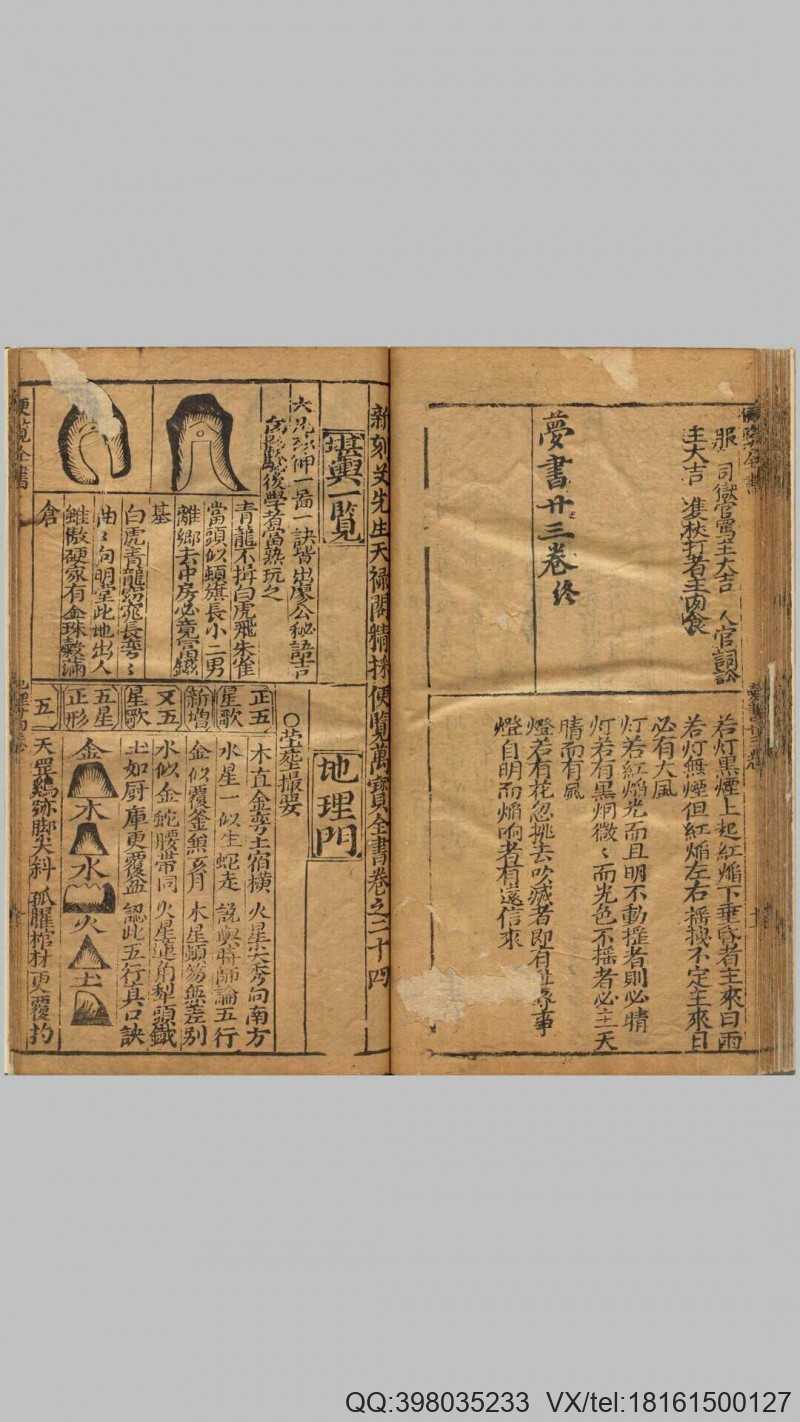 服 司獄官罵主大吉 人官詞訟
主大吉 進杖打者主肉食
夢書廿三卷終
若灯黑煙上起紅焔下垂昏者主來日雨
若灯無煙但紅焔左右摇拽不定主來日
必有大風
灯若紅焔光而且明不動摇者則必晴
灯若有黑炯微〻而光色不摇者必主天
晴而有風
燈若有花忽挑去吹滅者即有 事
燈自明而焔响者有遠信來
新刻艾先生天禄閣精採便覽萬寳全書卷之三十四
堪輿一覧
一啚一訣皆出廖公秘語吉
後學者當熟玩之
青龍不拱白虎飛朱雀
當頭似頓旗長小二男
離鄉去中房必竟富鐵
基
白虎青龍窈窕長彎〻
曲〻向明堂此地出人
雖傲硬家有金珠穀滿
倉
地理門
〇塋葬撮要
正五
星歌
木直金彎土宿横 火星尖秀向南方
水星一似生蛇走 説與時師論五行
新增
金似覆釜無 月 木星頓笏無差别
又五
水似金蛇腰帶同 火星 角犁頭鐵
星歌
土如厨庫更覆盆 認此五行真口訣
五星
正形
金
木
水
火
土
五
天罡鷄跡脚尖斜 孤 棺材更覆杓
QQ:398035233 VX/tel:18161500127